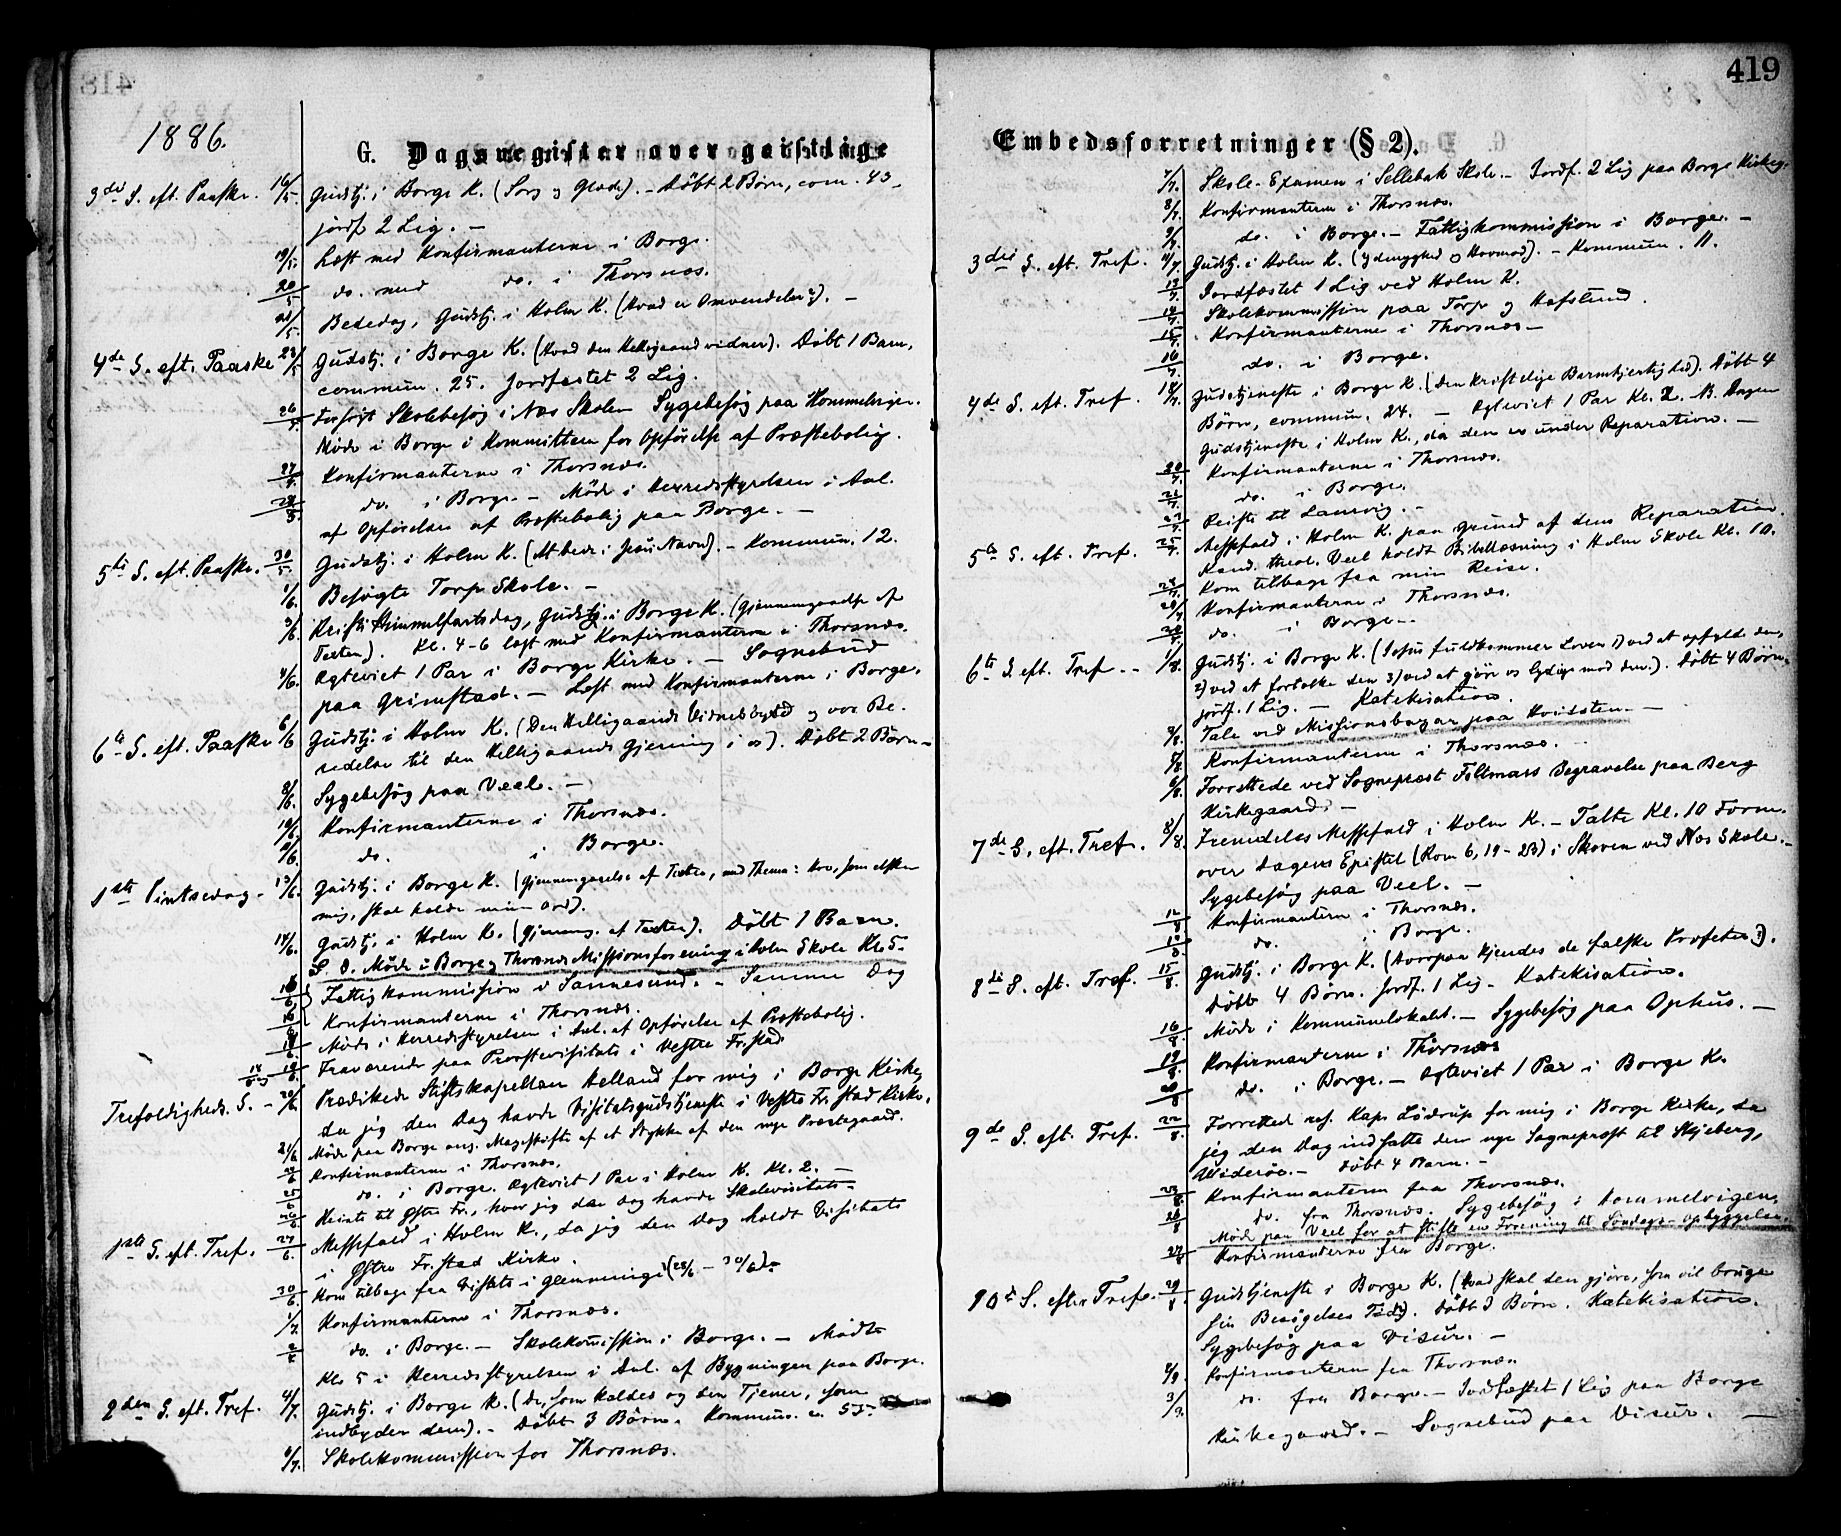 419
1886.
G. Dagsregister over geistlige
3die S. eft. Paaske. 16/5. Gudstj. i Borge K. (Sorg og Glæde). – Døbt 2 Børn, com. 43 –
jordf. 2 Lig. –
19/5. Læst med Konfirmanterne i Borge.
20/5 do. med do. i Thorsnæs.
21/5. Bededag, Gudstj. i Holm K. (Hvad er Omvendelse?). –
4de S. eft. Paaske 23/5 Gudstj. i Borge K. (Hvad den Helligaand vidner). Døbt 1 Barn,
commun. 25. Jordfæstet 2 Lig.
26/5 Skolebesøg i Næs Skole. Sygebesøg paa Hommelvigen.
Møde i Borge i Kommitteen for Opførelse af Præstebolig.
27/5. Konfirmanterne i Thorsnæs.
28/5. do. i Borge. – Møde i Herredsstyrelsen i Anl.
af Opførelse af Præstebolig paa Borge. –
5te S. eft. Paaske. 30/5. Gudstj. i Holm K. (At bede i Jesu Navn). – Kommun. 12.
1/6. Besøgte Torp Skole. –
3/6. Kristi Himmelfartsdag, Gudstj. i Borge K. (Gjennemgaaelse af
Texten). Kl. 4-6 læst med Konfirmanterne i Thorsnæs.
4/6. Ægteviet 1 Par i Borge Kirke. – Sognebud
paa Grimstad. – Læst med Konfirmanterne i Borge.
6te S. eft. Paaske 6/6 Gudstj. i Holm K. (Den Helligaands Vidnesbyrd og vor Be-
redelse til den Helligaands Gjerning i os). Døbt 2 Børn –
8/6. Sygebesøg paa Veel. –
10/6. Konfirmanterne i Thorsnæs.
11/6. do. i Borge.
1ste Pintsedag – 13/6. Gudstj. i Borge K. (Gjennemgaaelse af Texten, med Thema: Hvo, som elsker
mig, skal holde min Ord).
14/6. Gudstj. i Holm K. (Gjennemg. af Texten). Døbt 1 Barn.
S. D. Møde i Borge og Thorsnæs Missionsforening i Holm Skole Kl. 5.
16/6 Fattigkommission i Sannesund. – Samme Dag
16/6 Konfirmanterne i Thorsnæs.
18/6. Møde i Herredsstyrelsen i Anl. af Opførelse af Præstebolig.
18/6 og 19/6. Fraværende paa Provstevisitats i Vestre Fr.stad
Trefoldigheds. S. – 20/6 Prædikede Stiftskapellan Aelland for mig i Borge Kirke,
da jeg den Dag havde Visitatsgudstjeneste i Vestre Fr.stad Kirke.
21/6 Møde paa Borge ang. Mageskifte af et Stykke af den nye Præstegaard.
24/6 Konfirmanterne i Thorsnæs.
25/6 do. i Borge. Ægteviet 1 Par i Holm K. Kl. 2. –
26/6. Reiste til Østre Fr., hvor jeg den Dag havde Skolevisitats –
1ste S. eft. Tref. 27/6. Messefald i Holm K., da jeg den Dag holdt Visitats
i Østre Fr.stad Kirke.
30/6. Kom tilbage fra Visitats i Glemminge (28/6 – 30/6) –
1/7. Konfirmanterne i Thorsnæs.
2/7 do. i Borge. – Skolekommission i Borge. – Mødte
Kl. 5 i Herredsstyrelsen i Anl. af Bygningen paa Borge.
2den S. eft. Tref. 4/7. Gudstj. i Borge K. (De, som kaldes og den Tjener, som
indbyder dem). – Døbt 3 Børn. Kommun. 55.
6/7. Skolekommission for Thorsnæs.
Embedsforretninger (§ 2).
7/7. Skole-Examen i Sellebak Skole. – Jordf. 2 Lig paa Borge Kirkeg.
8/7. Konfirmanterne i Thorsnæs.
9/7. do. i Borge. – Fattigkommission i Borge. –
3die S. eft. Tref. 11/7. Gudstj. i Holm K. (Ydmyghed og Hovmod). – Kommun. 11.
13/7. Jordfæstet 1 Lig ved Holm K.
14/7. Skolekommission paa Torp og Hafslund.
15/7. Konfirmanterne i Thorsnæs –
16/7. do. i Borge.
4de S. eft. Tref. 18/7. Gudstjeneste i Borge K. (Den kristelige Barmhjertighed). Døbt 4
Børn, commun. 24. – Ægteviet 1 Par Kl. 2. N. Ingen
Gudstjeneste i Holm K., da den er under Reparation. –
20/7. Konfirmanterne i Thorsnæs.
do. i Borge.
Reiste til Laurvig. –
5te S. eft. Tref. 25/7. Messefald i Holm K. paa Grund af dens Reparation.
Kand. theol. Veel holdt Bibellæsning i Holm Skole Kl. 10.
Kom tilbage fra min Reise.
Konfirmanterne i Thorsnæs.
30/7. do. i Borge –
6te S. eft. Tref. – 1/8. Gudstj. i Borge K. (Jesus fuldkommer Loven 1) ved at opfylde den,
2) ved at fortolke den 3) ved at gjøre os lydige mod den). Døbt 4 Børn.
jordf. 1 Lig. – Katekisation.
Tale ved Missionsbazar paa Hvidsten. –
5/8. Konfirmanterne i Thorsnæs. –
6/8. Forrettede ved Sognepræst Feltmans Begravelse paa Berg
Kirkegaard. –
7de S. eft. Tref. 8/8. Fremdeles Messefald i Holm K. – Talte Kl. 10 Form.
over Dagens Epistel (Rom 6, 19-23) i Skoven ved Næs Skole. –
Sygebesøg paa Veel. –
12/8 Konfirmantern i Thorsnæs.
13/8 do. i Borge.
8de S. eft. Tref. 15/8. Gudstj. i Borge K. (Hvorpaa kjendes de falske Profeter?).
Døbt 4 Børn. Jordf. 1 Lig – Katekisation.
16/8. Møde i Kommunelokalet. – Sygebesøg paa Ophus. –
19/8. Konfirmanterne i Thorsnæs
20/8 do. i Borge. – Ægteviet 1 Par i Borge K.
9de S. eft. Tref. 22/8. Forrettede res. Kap. Lødrup for mig i Borge Kirke, da
jeg den Dag indsatte den nye Sognepræst til Skjeberg,
Widerøe. – Døbt 4 Barn. –
Konfirmantern fra Thorsnæs.
26/8 do. fra Thorsnæs. Sygebesøg i Hommelvigen.
Møde paa Veel for at stifte en Forening til Søndags-Opbyggelse.
27/8 Konfirmanterne fra Borge.
10de S. efter Tref. 29/8. Gudstjeneste i Borge K. (Hvad skal den gjøre, som vil bruge
sin Besøgelses Tid?). Døbt 3 Børn. Katekisation.
Sygebesøg paa Visur. –
2/9. Konfirmanterne fra Thorsnæs
3/9. do. fra Borge. – Jordfæstet 1 Lig paa Borge
Kirkegaard. – Sognebud paa Visur. –